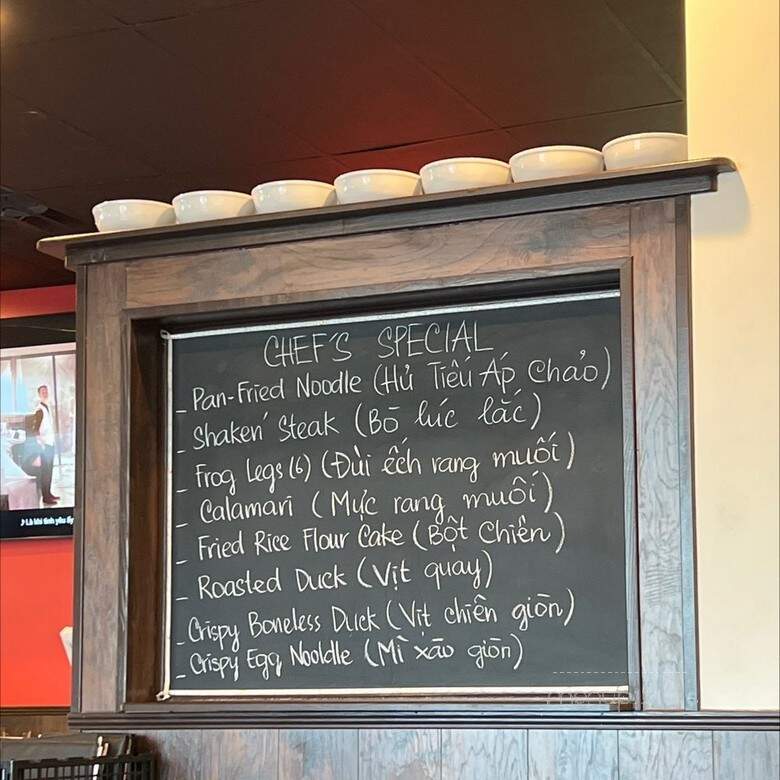 CHEF'S SPECIAL
- Pan-Fried Noodle (Hủ Tiếu Áp Chảo)
- Shaken' Steak (Bō lúc lắc)
- Frog Legs (6) (Đùi ếch rang muối)
- Calamari (Mực rang muối)
- Fried Rice Flour Cake (Bột Chiên)
- Roasted Duck (Vịt quay)
- Crispy Boneless Duck (Vịt chiên giōn)
- Crispy Egg Nooldle (Mì xāo giōn)
♪ Là khi tình yêu ấy